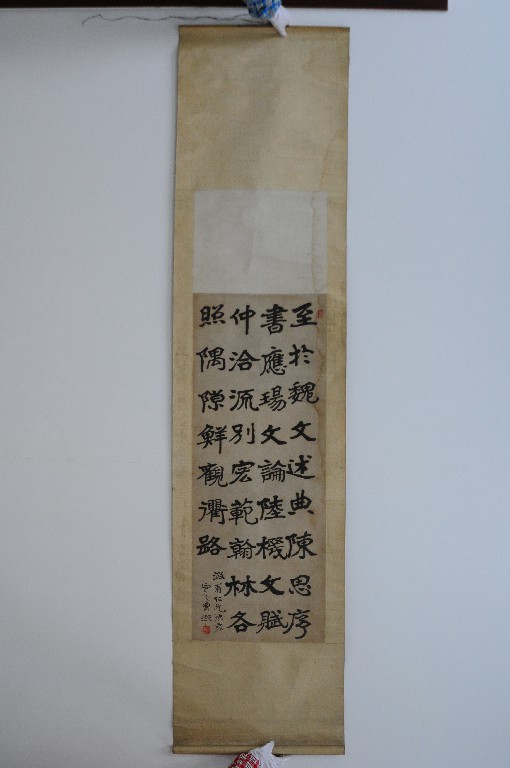 至於魏文述典陳思序
書應瑒文論陸機文賦
仲洽流別宏範翰林各
照隅隙鮮觀衢路
仁兄